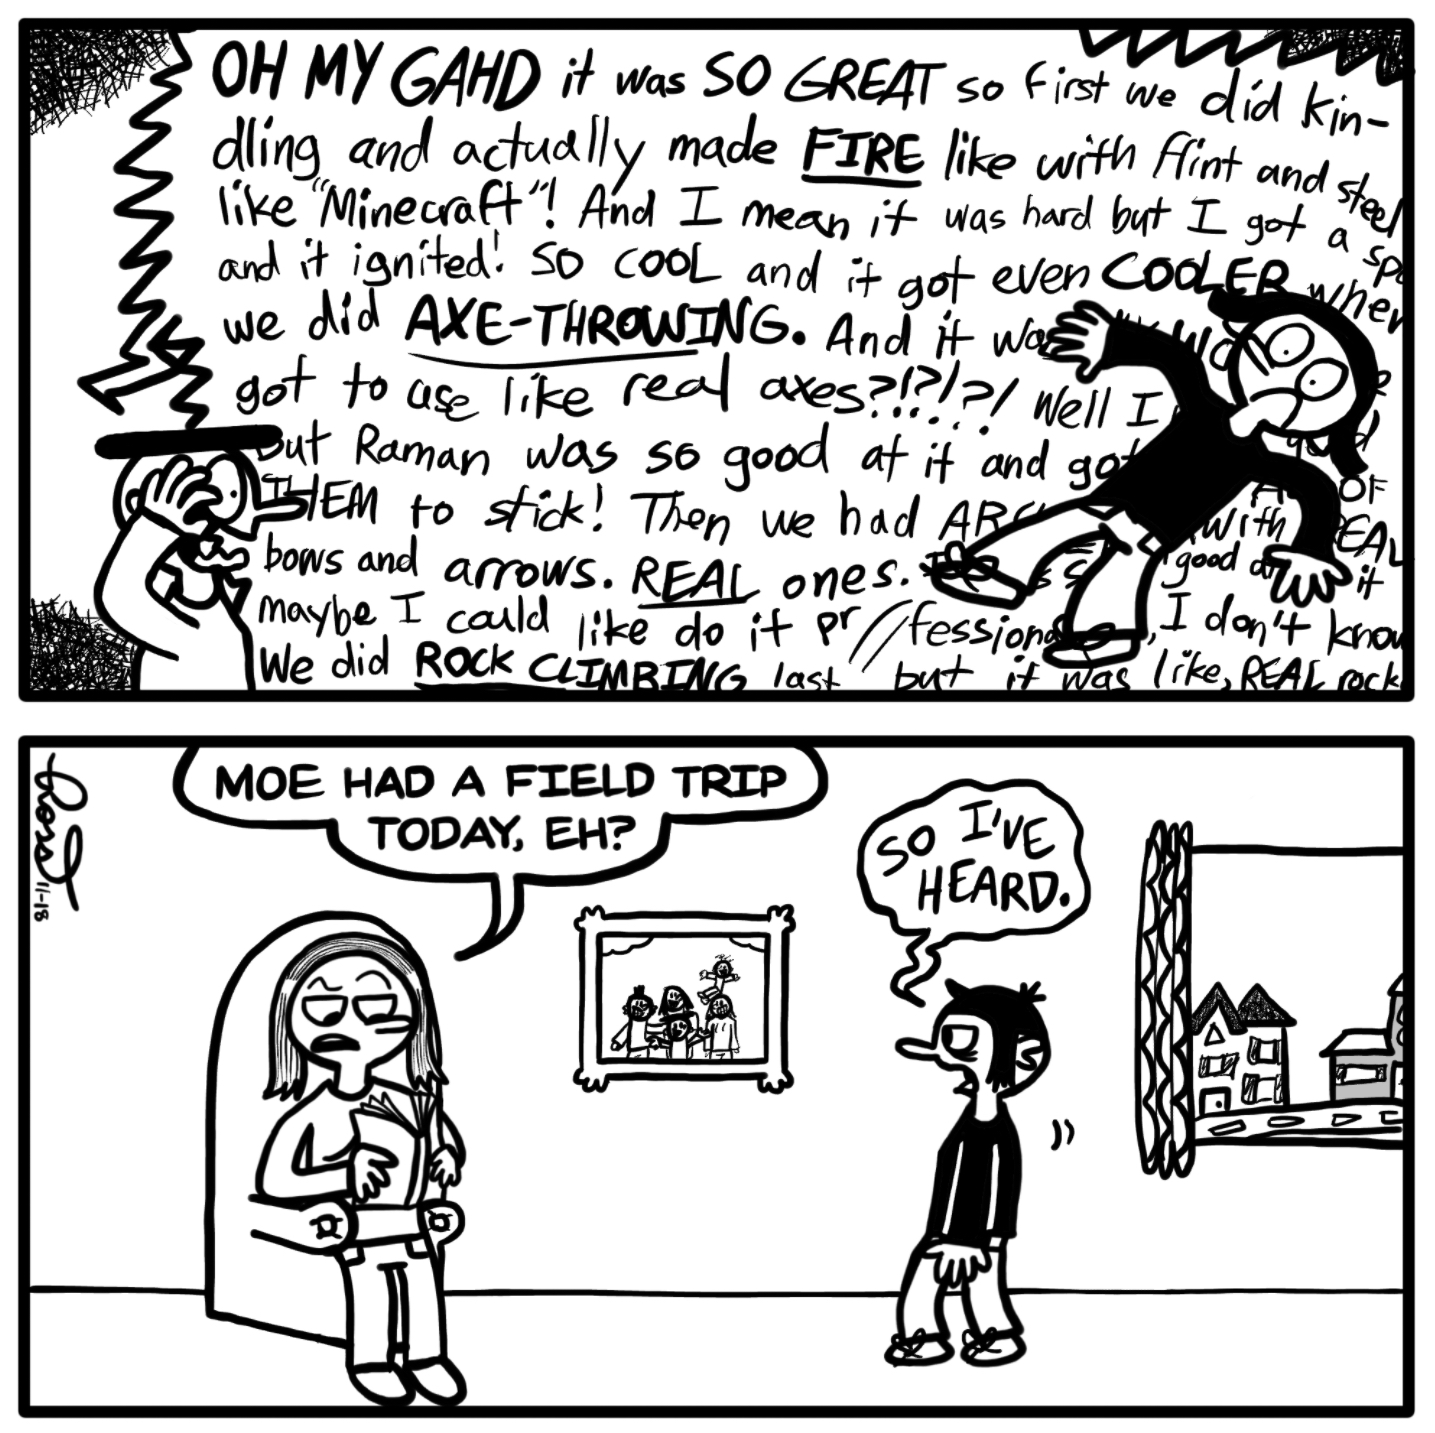 OH MY GAHD it was SO GREAT so first we did kin-
dling and actually made FIRE like with flint and steel
like "Minecraft"! And I mean it was hard but I got a
and it ignited! SO COOL and it got even COOLER when
we did AXE-THROWING. And it
got to use like real axes?!?!?! Well I
but Raman was so good at it and got
THEM to stick! Then we had with REAL
bows and arrows. REAL ones. good at it
maybe I could like do it professionally, I don't know
We did ROCK CLIMBING last but it was like, REAL rock
MOE HAD A FIELD TRIP
TODAY, EH?
SO I'VE
HEARD.
Ross
11-18